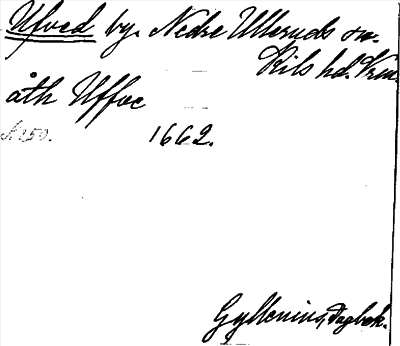 Ufved by. Nedre Ulleruds sn.
Kils hd. Vrm.
åth Uffve
s. 250. 1662.
Gyllenius, Dagbok.